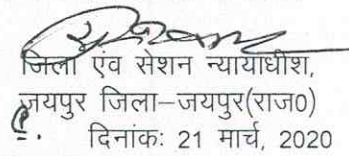 जिला एंव सेशन न्यायाधीश,
जयपुर जिला–जयपुर(राज०)
दिनांक: 21 मार्च, 2020